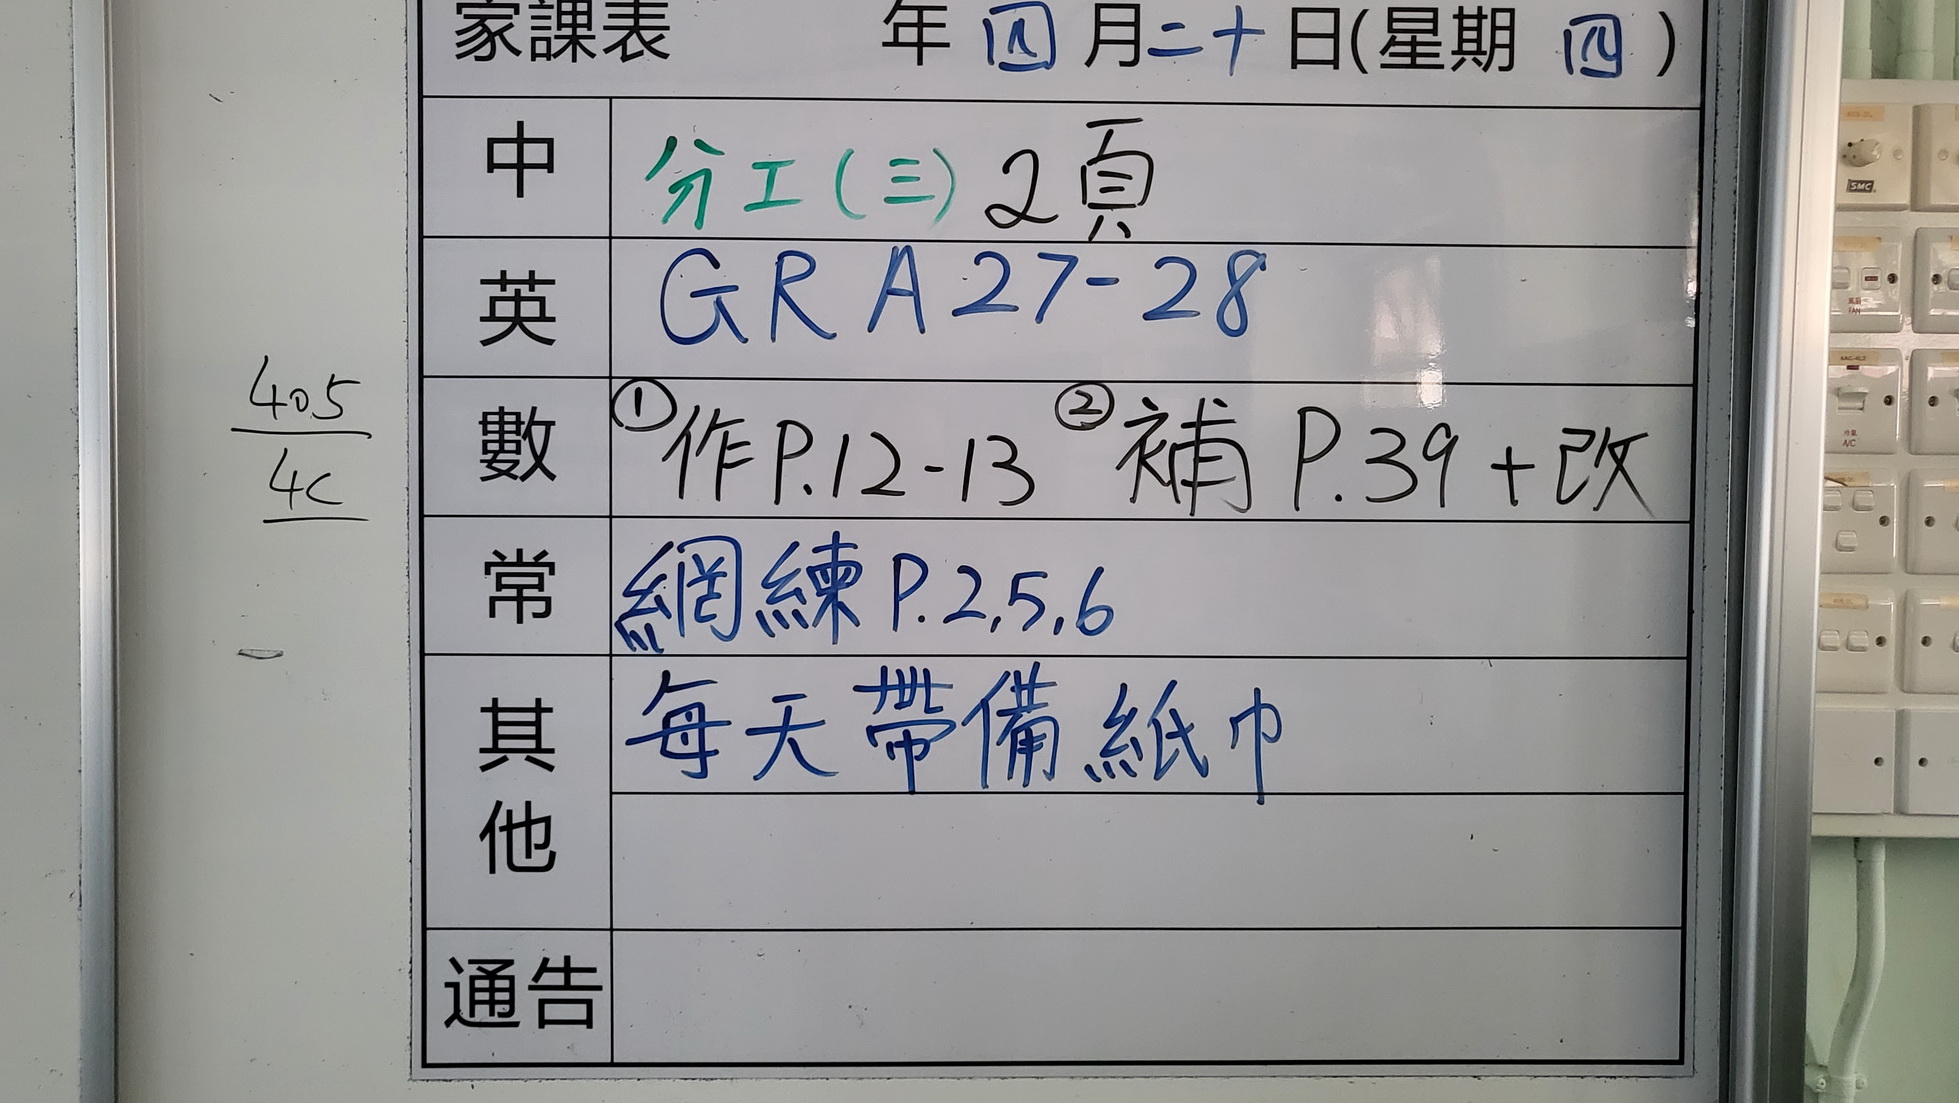 家課表 年 四 月 二十 日(星期 四 )
中 分工(三) 2頁
英 GRA 27-28
數 ①作P.12-13 ②補 P.39 + 改
405
4C
常 網練 P.2,5,6
其他 每天帶備紙巾
通告
SMC
FAN
A/C